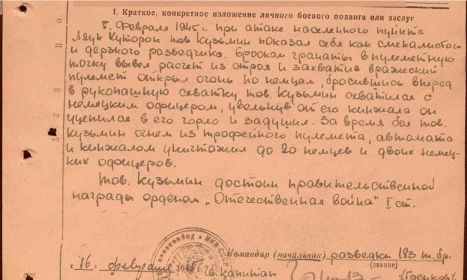 I. Краткое, конкретное изложение личного боевого подвига или заслуг
8. Февраля 1945 г. при атаке населенного пункта
Ляук тов. Кузьмин показал себя как смекалистого
и дерзкого разведчика, броском гранаты в пулеметную
точку вывел расчет из строя и захватив вражеский
пулемет открыл огонь по немцам, бросившись вперед
в рукопашную схватку тов. Кузьмин схватился с
немецким офицером, увельнув от его кинжала он
уцепился в его горло и задушил. За время боя тов.
Кузьмин огнем из трофейного пулемета, автомата
и кинжалом уничтожил до 20 немцев и двоих немец-
ких офицеров.
Тов. Кузьмин достоин правительственной
награды орденом „Отечественная война" I ст.
Командир (начальник) разведки 183 т. бр.
(звание)
"16" февраля капитан